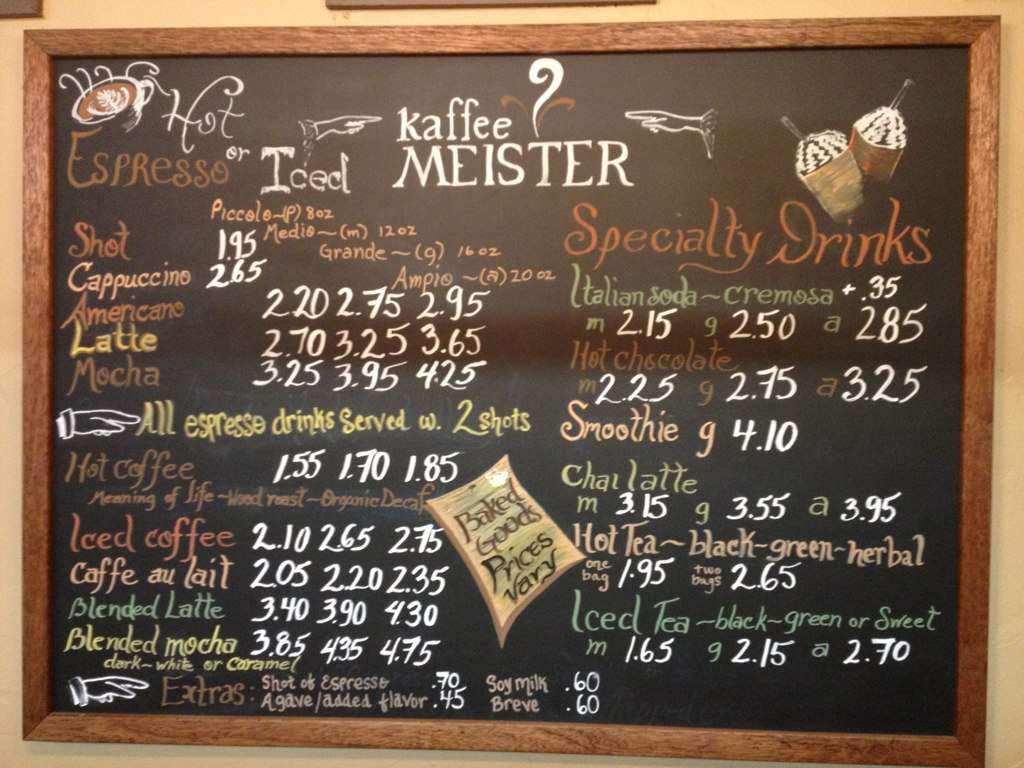 Hot
Espresso or Iced
kaffee
MEISTER
Piccolo~(P) 8oz
Medio~(m) 12oz
Grande~(g) 16oz
Ampio~(a) 20oz
Shot 1.95
Cappuccino 2.65
Americano 2.20 2.75 2.95
Latte 2.70 3.25 3.65
Mocha 3.25 3.95 4.25
All espresso drinks Served w. 2 shots
Hot coffee 1.55 1.70 1.85
Meaning of life~Wood roast~Organic Decaf
Iced coffee 2.10 2.65 2.75
Caffe au lait 2.05 2.20 2.35
Blended Latte 3.40 3.90 4.30
Blended mocha 3.85 4.35 4.75
dark~white or Caramel
Extras: Shot of Espresso .70 Soy milk .60
Agave/added flavor .45 Breve .60
Baked
Goods
Prices
Vary
Specialty Drinks
Italian soda~cremosa +.35
m 2.15 g 2.50 a 2.85
Hot chocolate
m 2.25 g 2.75 a 3.25
Smoothie g 4.10
Chai latte
m 3.15 g 3.55 a 3.95
Hot Tea~black~green~herbal
one bag 1.95 two bags 2.65
Iced Tea~black~green or Sweet
m 1.65 g 2.15 a 2.70